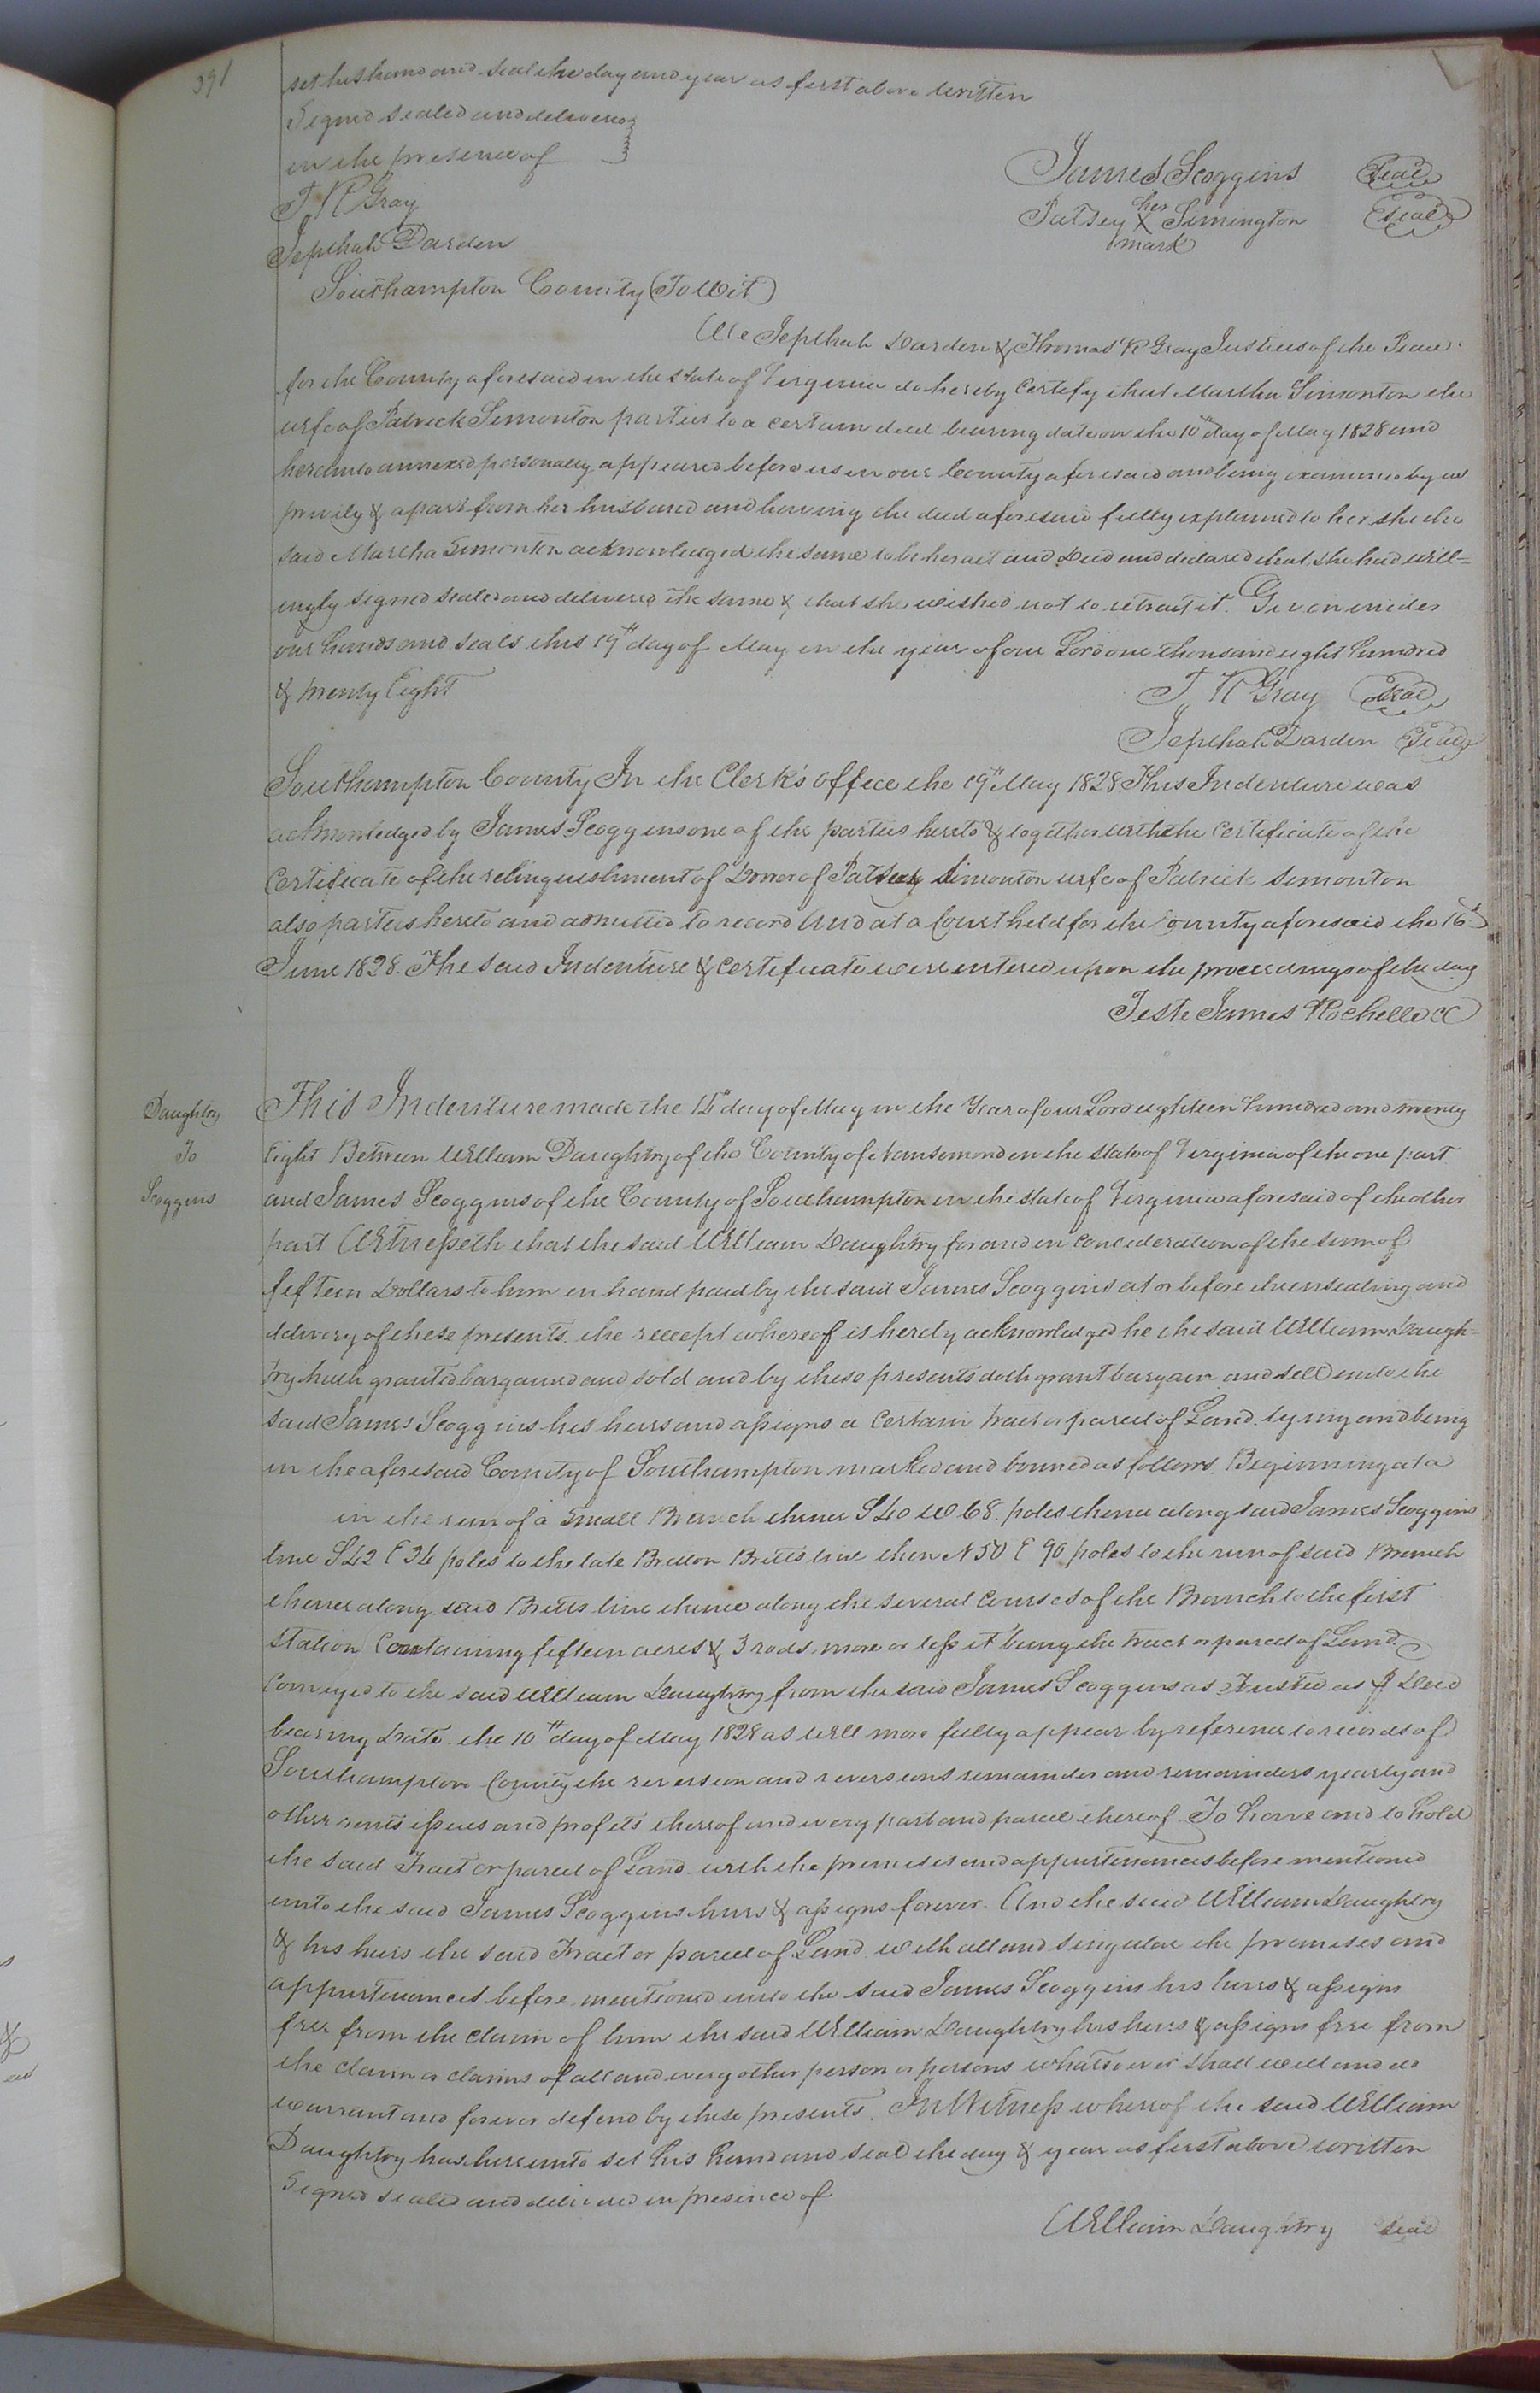 391
set his hand and seal the day and year as first above written
Signed sealed and delivered
in the presence of
T R Gray
Jepthah Darden
James Scoggins Seal
her
Patsey X Simington Seal
mark
Southampton County (To Wit)
We Jepthah Darden & Thomas R Gray Justices of the Peace
for the County aforesaid in the State of Virginia do hereby certify that Martha Simonton the
wife of Patrick Simonton parties to a certain deed bearing date on the 10th day of May 1828 and
hereunto annexed personally appeared before us in our County aforesaid and being examined by us
privily & apart from her husband and having the deed aforesaid fully explained to her she the
said Martha Simonton acknowledged the same to be her act and Deed and declared that she had will=
ingly signed sealed and delivered the same & that she wished not to retract it. Given under
our hands and seals this 19th day of May in the year of our Lord one thousand eight hundred
& twenty Eight
T R Gray Seal
Jepthah Darden Seal
Southampton County In the Clerk's office the 19th May 1828 This Indenture was
acknowledged by James Scoggins one of the parties hereto & together with the certificate of the
Certificate of the relinquishment of Dower of Patsey Simonton wife of Patrick Simonton
also parties hereto and admitted to record And at a Court held for the County aforesaid the 16th
June 1828. The said Indenture & certificate were entered upon the proceedings of the day
Teste James Rochelle CC
Daughtry
To
Scoggins
This Indenture made the day of May in the Year of our Lord eighteen hundred and twenty
Eight Between William Daughtry of the County of Nansemond in the State of Virginia of the one part
and James Scoggins of the County of Southampton in the State of Virginia aforesaid of the other
part Witnesseth that the said William Daughtry for and in consideration of the sum of
fifteen Dollars to him in hand paid by the said James Scoggins at or before the ensealing and
delivery of these presents the receipt whereof is herely acknowledged he the said William Daugh=
try hath granted bargained and sold and by these presents doth grant bargain and sell unto the
said James Scoggins his heirs and assigns a certain tract or parcel of Land lying and being
in the aforesaid County of Southampton marked and bouned as follows. Beginning at a
in the run of a small Branch thence S40 W 68 poles thence along said James Scoggins
line S42 E 34 poles to the late Britton Britts line then N50 E 90 poles to the run of said Branch
thence along said Britts line thence along the several courses of the Branch to the first
station Containing fifteen acres & 3 rods more or less it being the tract or parcel of Land
Conveyed to the said William Daughtry from the said James Scoggins as Trustee as Deed
bearing Date the 10th day of May 1828 as will more fully appear by reference to records of
Southampton County the reversion and reversions remainder and remainders yearly and
other rents issues and profits thereof and every part and parcel thereof To have and to hold
the said Tract or parcel of Land with the premises and appurtenances before mentioned
unto the said James Scoggins heirs & assigns forever. And the said William Daughtry
& his heirs the said Tract or parcel of Land with all and singular the premises and
appurtenances before mentioned unto the said James Scoggins his heirs & assigns
free from the claim of him the said William Daughtry his heirs & assigns free from
the claim or claims of all and every other person or persons whatsoever shall will and do
warrant and forever defend by these presents. In Witness whereof the said William
Daughtry has hereunto set his hand and seal the day & year as first above written
Signed sealed and delivered in presence of
William Daughtry Seal